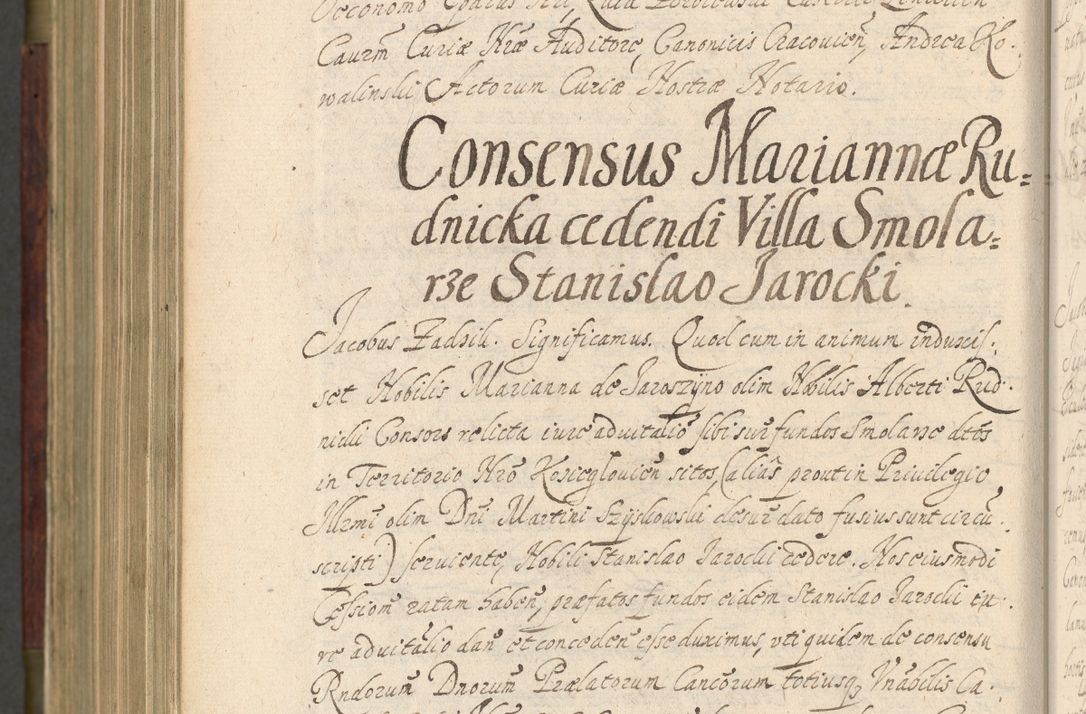 Oeconomo
Cauzm̃ Curiæ Nræ Auditore, Canonicis Cracovien̄, Andrea Ko.
walinskii Actorum Curiæ Nostræ Notario.
Consensus Mariannæ Ru=
dnicka cedendi Villa Smola=
rze Stanislao Jarocki.
Jacobus Zadzik. Significamus. Quod cum in animum induxis.
set Nobilis Marianna de Jaroszyno olim Nobilis Alberti Rud.
nicki Consors relicta iure advitalio sibi sup̄ fundos Smolarze dctos
in Territorio Nro̅ Kozieglovien̄ sitos, (alias prout in Privilegio
Illzmi̅ olim Dni̅ Martini Szyszkowski desup̄ dato fusius sunt circu̅.
scripti) serviente, Nobili Stanislao Jarocki cedere. Nos eiusmodi
Cessiom̄ ratam haben̄, præfatos fundos eidem Stanislao Jarocki iu.
re advitalio dan̄ et conceden̄ esse duximus, uti quidem de consensu
Rndorum̄ Dnorum̄ Prælatorum Cancorum totiusq, Vnabilis Ca.